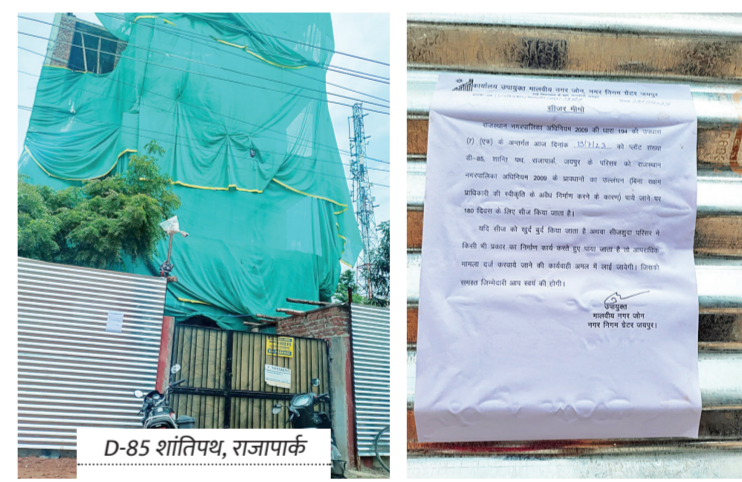 D-85 शांतिपथ, राजापार्क
कार्यालय उपायुक्त मालवीय नगर जोन, नगर निगम ग्रेटर जयपुर
सीजर मीमो
राजस्थान नगरपालिका अधिनियम 2009 की धारा 194 की उपधारा
(7) (एफ) के अन्तर्गत आज दिनांक 13/7/23 को प्लॉट संख्या
डी-85, शान्ति पथ, राजापार्क, जयपुर के परिसर को राजस्थान
नगरपालिका अधिनियम 2009 के प्रावधानों का उल्लंघन (बिना सक्षम
प्राधिकारी की स्वीकृति के अवैध निर्माण करने के कारण) पाये जाने पर
180 दिवस के लिए सीज किया जाता है।
यदि सीज को खुर्द बुर्द किया जाता है अथवा सीजशुदा परिसर में
किसी भी प्रकार का निर्माण कार्य करते हुए पाया जाता है तो आपराधिक
मामला दर्ज करवाये जाने की कार्यवाही अमल में लाई जावेगी। जिसकी
समस्त जिम्मेदारी आप स्वयं की होगी।
उपायुक्त
मालवीय नगर जोन
नगर निगम ग्रेटर जयपुर।